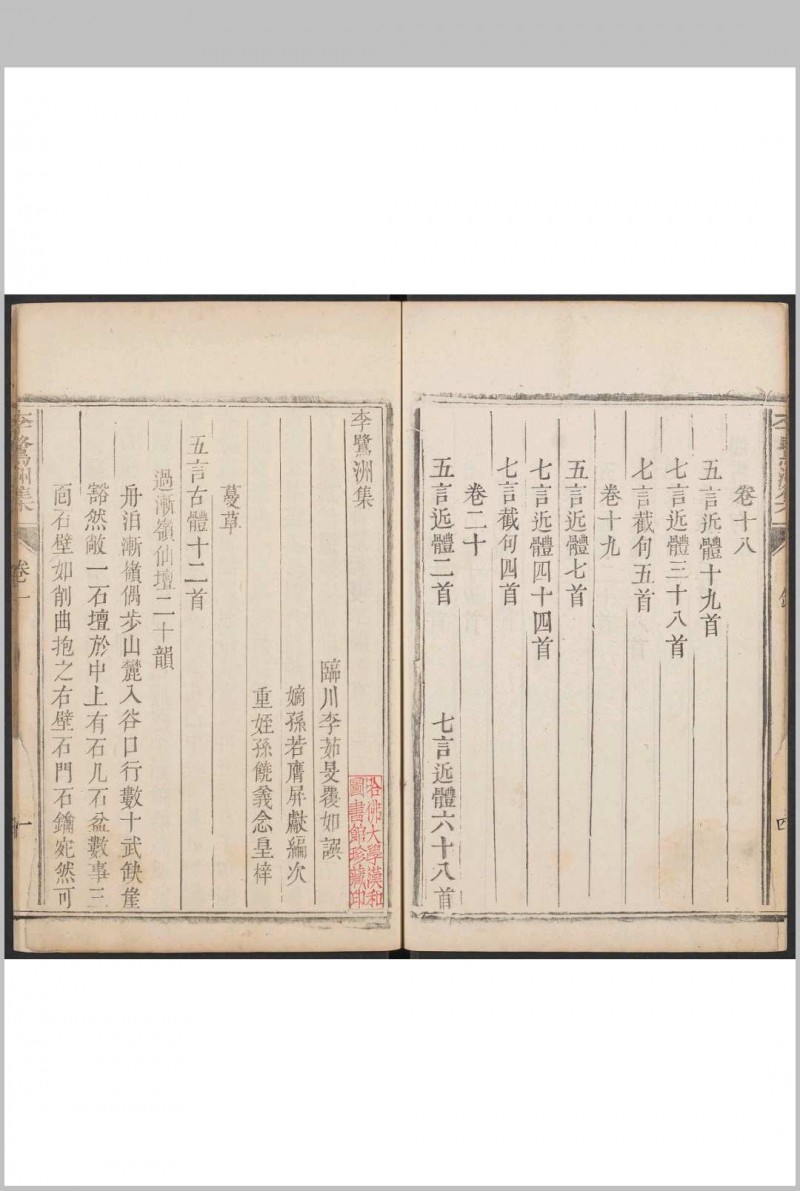 卷十八
五言近體十九首
七言近體三十八首
七言截句五首
卷十九
五言近體七首
七言近體四十四首
七言截句四首
卷二十
五言近體二首 七言近體六十八首
四
李鷺洲集
臨川李茹旻覆如譔
嫡孫若膺屏獻編次
重姪孫饒義念皇梓
蔓草
五言古體十二首
過漸嶺仙壇二十韻
舟泊漸嶺偶步山麓入谷口行數十武缺崖
豁然敞一石壇於中上有石几石盆數事三
面石壁如削曲抱之右壁石門石鑰宛然可
李鷺洲集 卷一 一
哈佛大學漢和
圖書館珍藏印